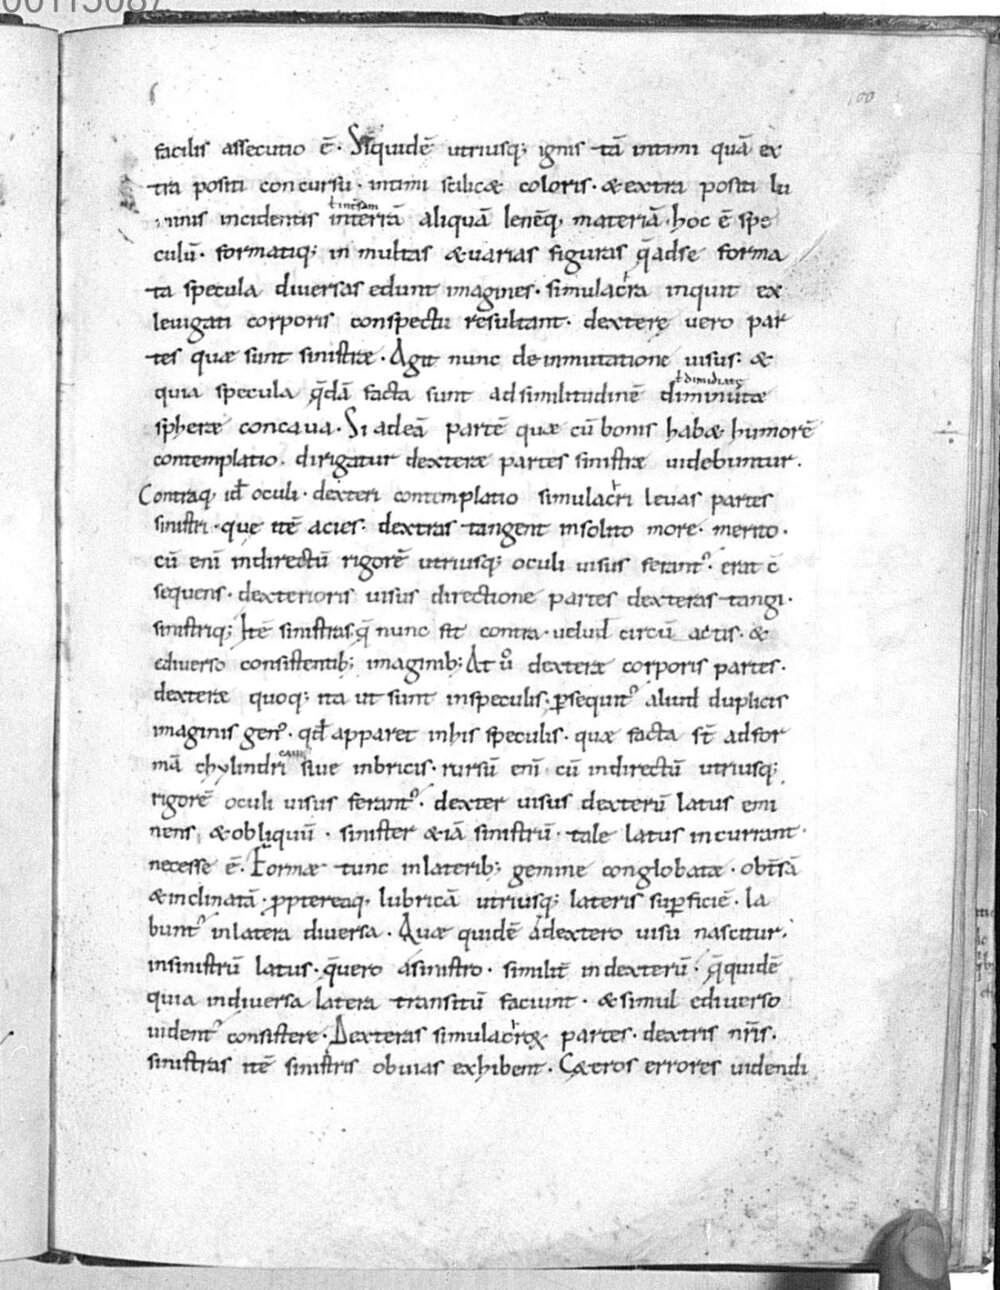 00115087
100
facilis assecutio ē. Siquidē utriusq; ignis tā intimi quā ex
tra positi concursu. intimi scilicæ coloris. &extra positi lu
minis incidentis interiā aliquā lenēq, materiā. hoc ē spe
culū. formatiq; in multas &uarias figuras q̄adse forma
ta specula diuersas edunt imagines. simulacra inquit ex
leuigati corporis conspectu resultant. dextere uero par
tes quæ sunt sinistræ. Agit nunc de inmutatione uisus. &
ł dimidiatę
quia specula q̄dā facta sunt adsimilitudinē diminutæ
spheræ concaua. Si adeā partē quæ cū bonis habæ humorē
contemplatio. dirigatur dexteræ partes sinistræ uidebuntur.
Contraq, id oculi. dexteri contemplatio simulacri leuas partes
sinistri. que itē acies. dextras tangent insolito more. merito.
cū eni indirectū rigorē utriusq; oculi uisus ferant᷒. erat c̄
sequens. dexterioris uisus directione partes dexteras tangi.
sinistriq; Itē sinistras. q̄ nunc fit contra. uelud circū actis. &
ediuerso consistentib; imaginib; At ů dexteræ corporis partes.
dexteræ quoq; ita ut sunt inspeculis. ꝑsequit᷒ aliud duplicis
imaginis gen᷒. qđ apparet inhis speculis. quæ facta st̄ adfor
mā chylindri siue inbricis. rursū eni cū indirectū utriusq;
rigorē oculi uisus ferant᷒. dexter uisus dexterū latus emi
nens, &obliquū. sinister &iā sinistrū. tale latus incurrant.
necesse ē. Formæ tunc inlaterib; gemine conglobatæ. obt̄sā
&inclinatā. ꝓptereaq, lubricā utriusq; lateris suꝑficiē. la
bunt᷒ inlatera diuersa. Quæ quidē adextero uisu nascitur.
insinistrū latus. q̄uero asinistro. similit̄ indexterū. q̄quidē
quia indiuersa latera transitū faciunt. &simul ediuerso
uident᷒ consistere. Dexteras simulacroꝝ partes. dextris nr̄is.
sinistras itē sinistris obuias exhibent. Cæteros errores uidendi